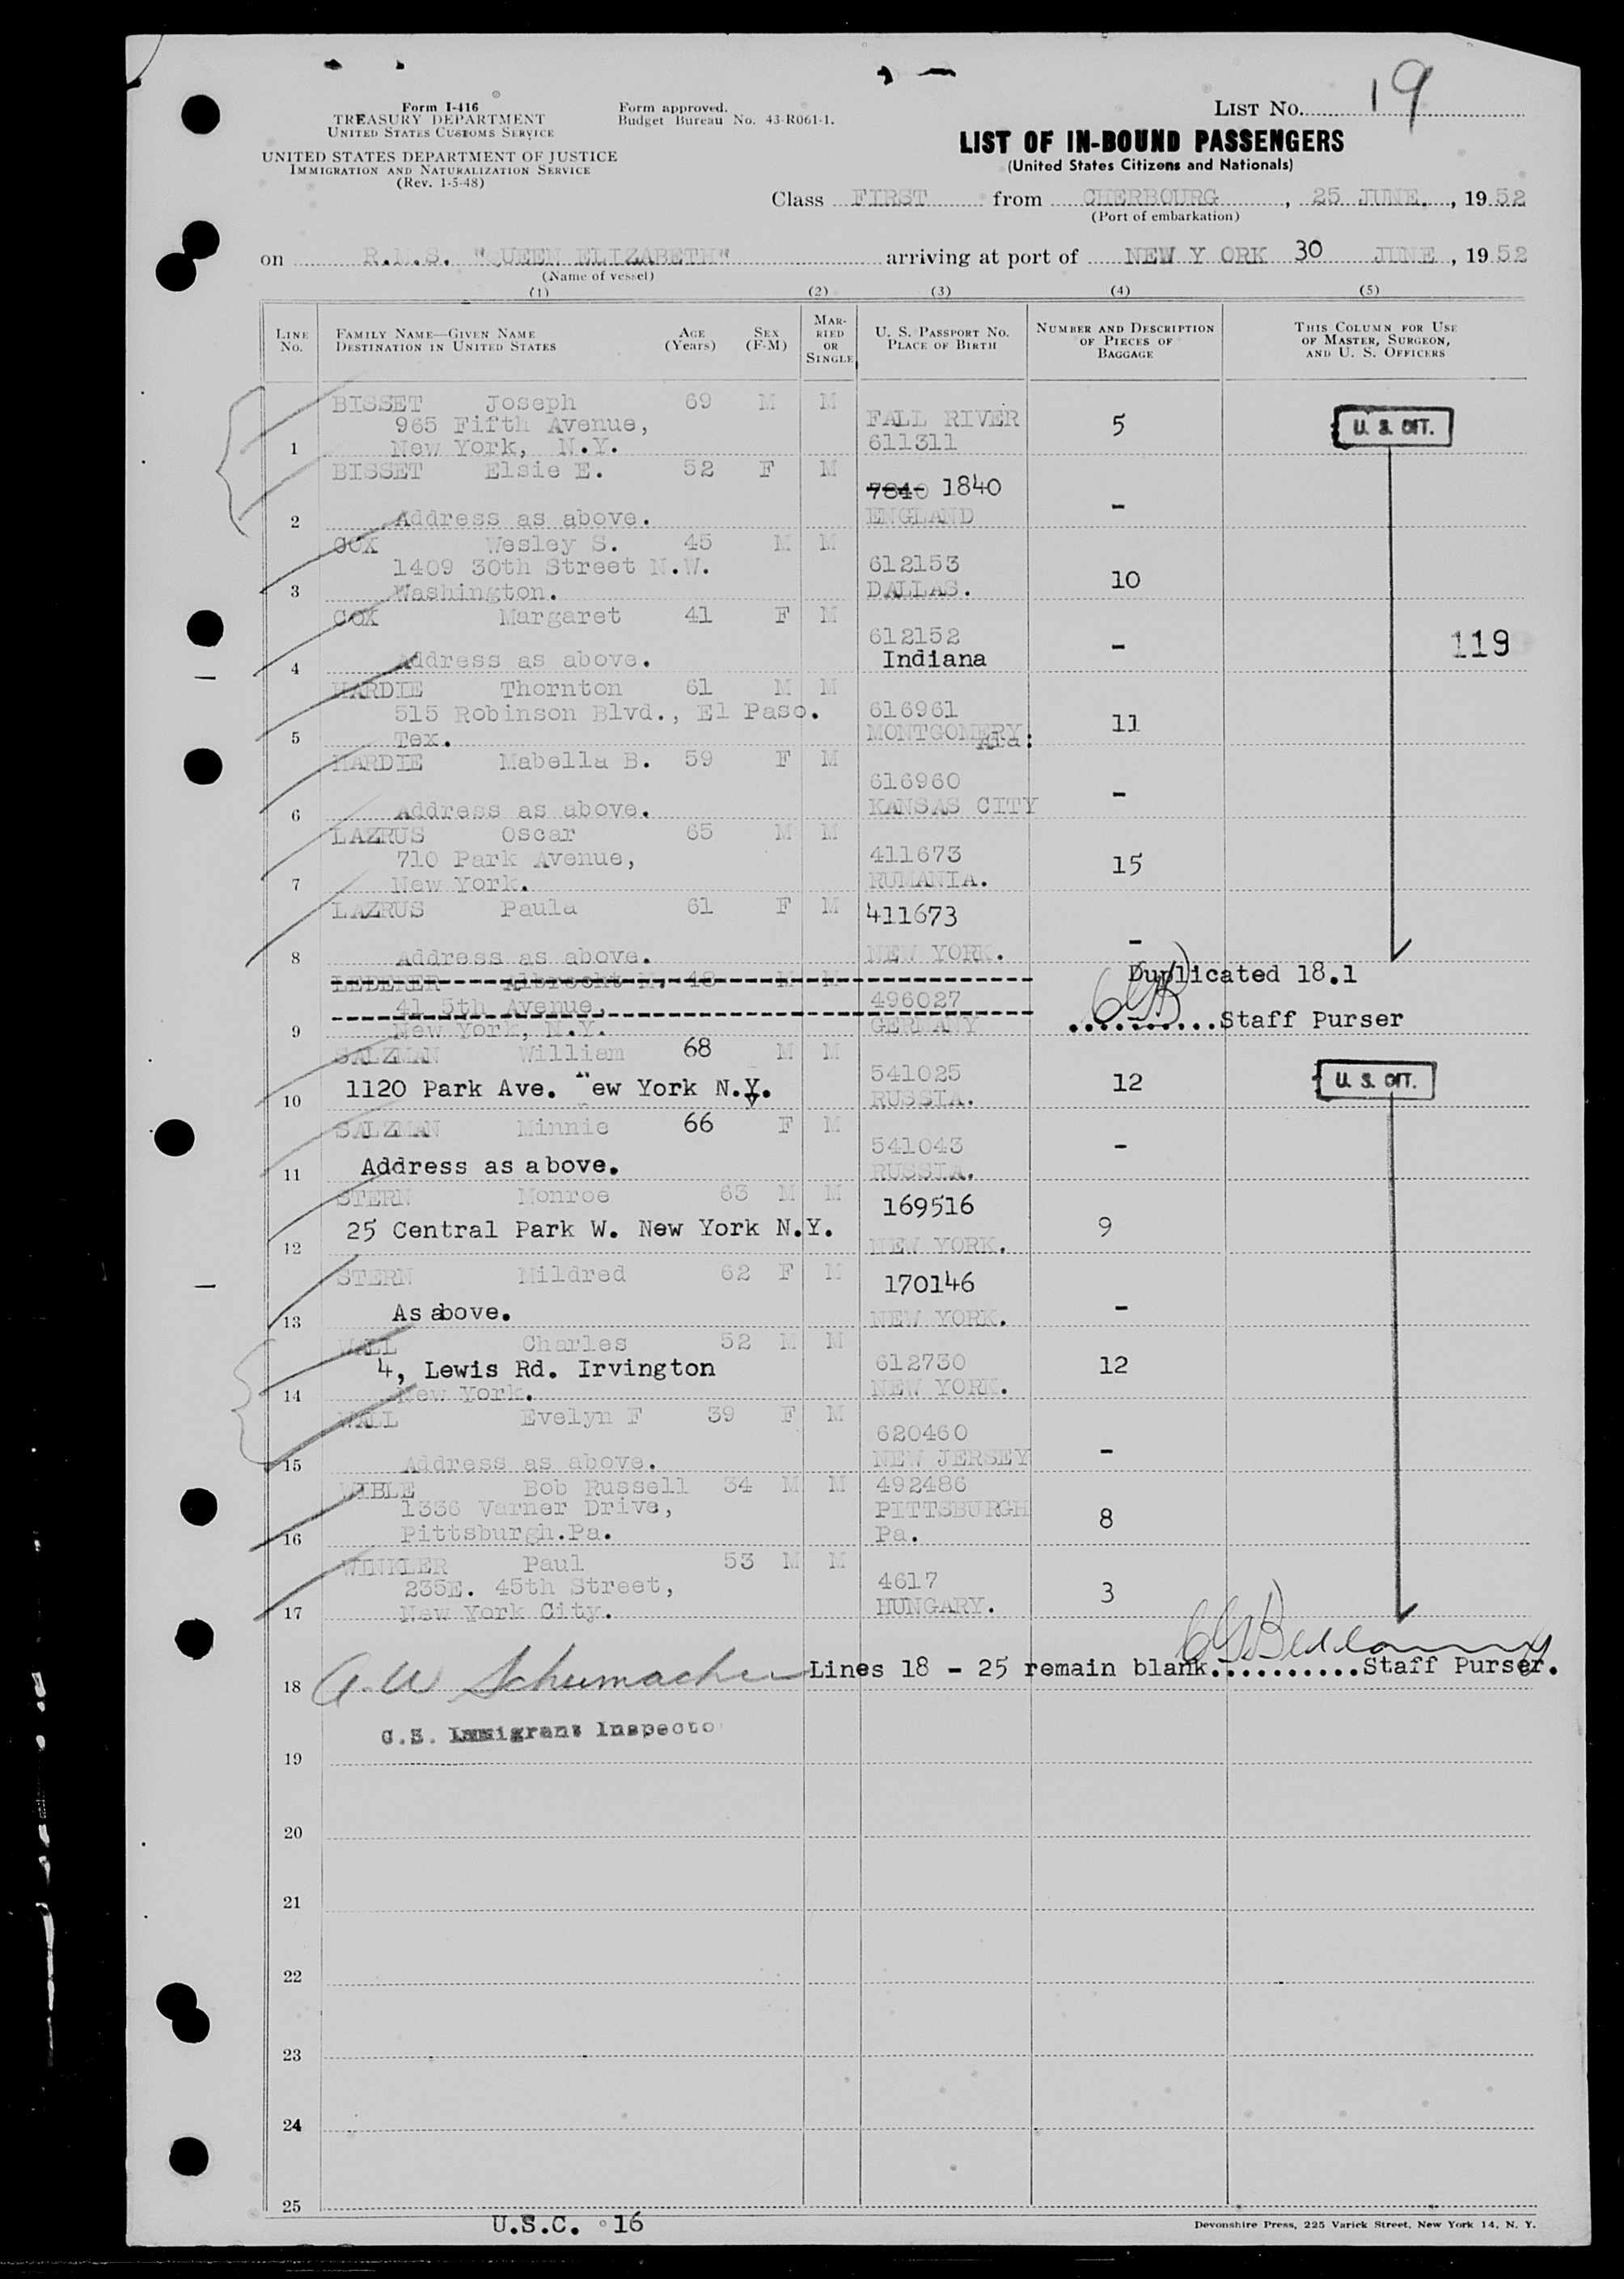 Form I-416
TREASURY DEPARTMENT
UNITED STATES CUSTOMS SERVICE
UNITED STATES DEPARTMENT OF JUSTICE
IMMIGRATION AND NATURALIZATION SERVICE
(Rev. 1-5-48)
Form approved.
Budget Bureau No. 43-R061-1.
LIST NO. 19
LIST OF IN-BOUND PASSENGERS
(United States Citizens and Nationals)
Class FIRST from CHERBOURG, 25 JUNE, 1952
(Port of embarkation)
on R.M.S. "QUEEN ELIZABETH" arriving at port of NEW Y ORK 30 JUNE, 1952
(Name of vessel)
(1) (2) (3) (4) (5)
LINE NO. FAMILY NAME—GIVEN NAME DESTINATION IN UNITED STATES AGE (Years) SEX (F-M) MARRIED OR SINGLE U. S. PASSPORT NO. PLACE OF BIRTH NUMBER AND DESCRIPTION OF PIECES OF BAGGAGE THIS COLUMN FOR USE OF MASTER, SURGEON, AND U. S. OFFICERS
BISSET Joseph 69 M M
965 Fifth Avenue, FALL RIVER 5 U. S. CIT.
1 New York, N.Y. 611311
BISSET Elsie E. 52 F M
7840 1840 -
2 Address as above. ENGLAND
COX Wesley S. 45 M M
1409 30th Street N.W. 612153 10
3 Washington. DALLAS.
COX Margaret 41 F M
612152 - 119
4 Address as above. Indiana
HARDIE Thornton 61 M M
515 Robinson Blvd., El Paso. 616961 11
5 Tex. MONTGOMERY Ala:
HARDIE Mabella B. 59 F M
616960 -
6 Address as above. KANSAS CITY
LAZRUS Oscar 65 M M
710 Park Avenue, 411673 15
7 New York. RUMANIA.
LAZRUS Paula 61 F M 411673
8 Address as above. NEW YORK. -
LEDERER Albrecht M. 48 M M Duplicated 18.1
41 5th Avenue, 496027
9 New York, N.Y. GERMANY ..........Staff Purser
SALZMAN William 68 M M
1120 Park Ave. New York N.Y. 541025 12 U. S. CIT.
10 RUSSIA.
SALZMAN Minnie 66 F M
541043 -
11 Address as above. RUSSIA.
STERN Monroe 63 M M 169516
25 Central Park W. New York N.Y. 9
12 NEW YORK.
STERN Mildred 62 F M 170146
13 As above. NEW YORK. -
WALL Charles 52 M M
4, Lewis Rd. Irvington 612730 12
14 New York. NEW YORK.
WALL Evelyn F 39 F M
620460 -
15 Address as above. NEW JERSEY
WIBLE Bob Russell 34 M M 492486
1336 Varner Drive, PITTSBURGH 8
16 Pittsburgh.Pa. Pa.
WINKLER Paul 53 M M
235E. 45th Street, 4617 3
17 New York City. HUNGARY.
18 A.W Schumacher Lines 18 - 25 remain blank..........Staff Purser.
U.S. Immigrant Inspector
19
20
21
22
23
24
25
U.S.C. 16
Devonshire Press, 225 Varick Street, New York 14, N. Y.